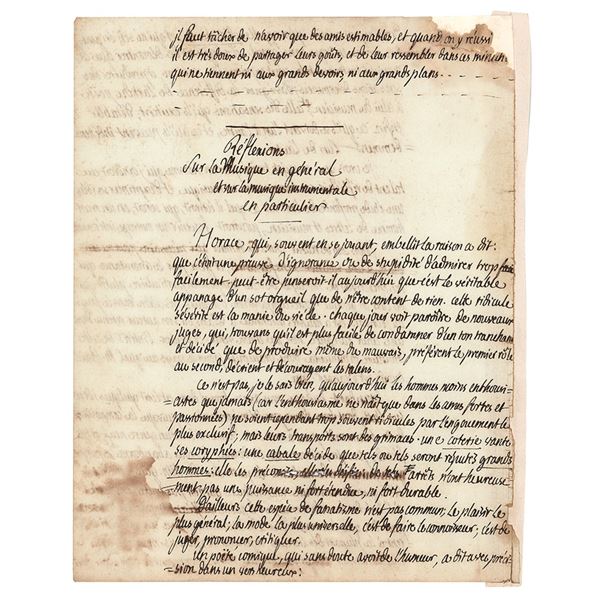 il faut tâcher de n'avoir que des amis estimables, et quand on y réussi
il est très doux de partager leurs goûts, et de leur ressembler dans ces minuti
qui ne tiennent ni aux grands devoirs ni aux grands plans.
Réflexions
Sur la Musique en général
et sur la musique instrumentale
en particulier
Horace, qui, souvent en se jouant, embellit la raison a dit:
que c'étoit une preuve d'ignorance ou de stupidité d'admirer trop
facilement. peut-être penseroit-il aujourd'hui que c'est le véritable
appanage d'un sot orgueil que de n'être content de rien. cette ridicule
sévérité est la manie du siècle. chaque jour voit paroître de nouveaux
juges, qui, trouvans qu'il est plus facile de condamner d'un ton tranchant
et décidé que de produire même du mauvais, préfèrent le premier rôle
au second, décrient et découragent les talens.
Ce n'est pas, je le sais bien, qu'aujourd'hui les hommes moins enthousi-
astes que jamais (car l'enthousiasme ne naît que dans les ames fortes et
passionnées) ne soient cependant trop souvent ridicules par l'engouement le
plus exclusif; mais leurs transports sont des grimaces. une coterie vante
ses coryphées: une cabale décide que tels ou tels seront réputés grands
hommes: elle les arrêts n'ont heureuse
ment pas une puissance ni fort étendue, ni fort durable.
D'ailleurs cette espèce de fanatisme n'est pas commun; le plaisir le
plus général, la mode la plus universelle, c'est de faire le connoisseur, c'est de
juger, prononcer, critiquer.
Un poëte comique, qui sans doute avoit de l'humeur, a dit avec préci
sion dans un vers heureux: